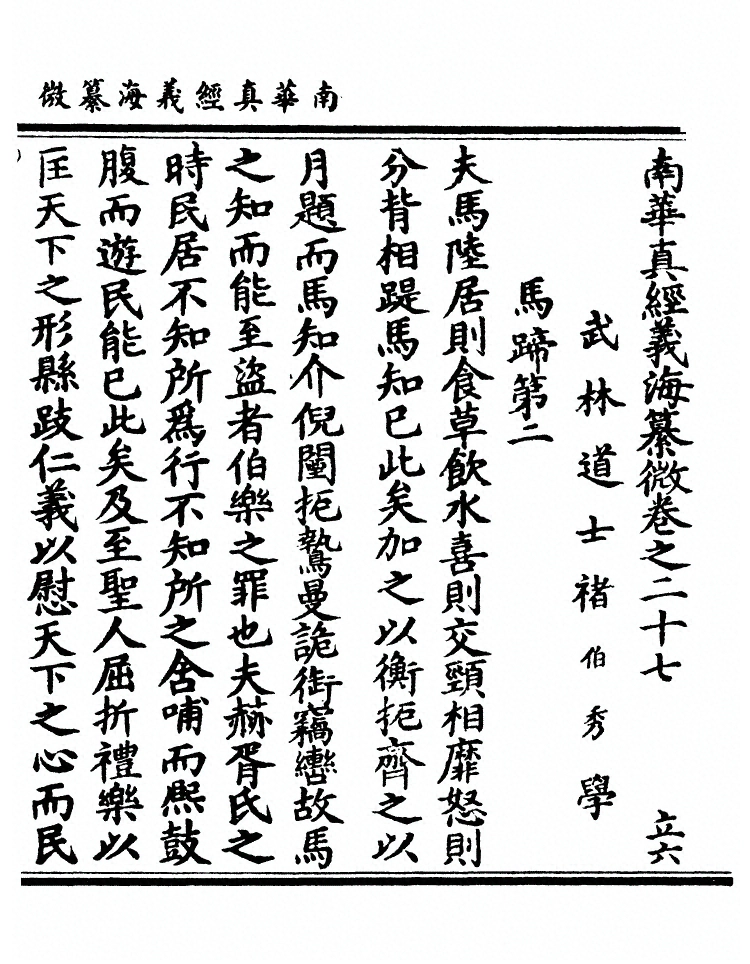 南華真經義海纂微
南華真經義海纂微卷之二十七 立六
武林道士褚伯秀學
馬蹄第二
夫馬陸居則食草飲水喜則交頸相靡怒則
分背相踶馬知已此矣加之以衡扼齊之以
月題而馬知介倪闉扼鷙曼詭銜竊轡故馬
之知而能至盜者伯樂之罪也夫赫胥氏之
時民居不知所為行不知所之含哺而熙鼓
腹而遊民能已此矣及至聖人屈折禮樂以
匡天下之形縣跂仁義以慰天下之心而民